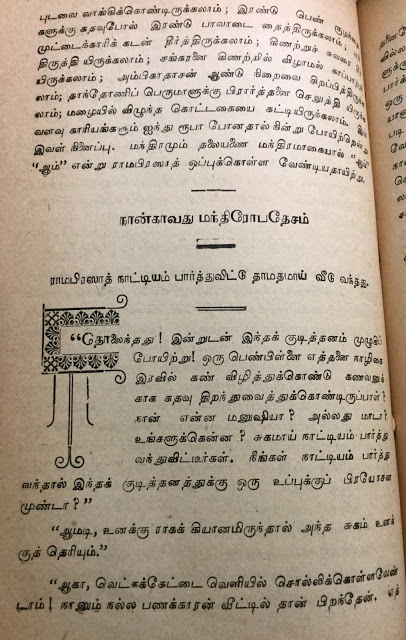 புடவை வாங்கிக்கொண்டிருக்கலாம் ; இரண்டு பெண்
களுக்கு கதவுபோல் இரண்டு பாவாடை தைத்திருக்கலாம் ;
முட்டைக்காரிக் கடன் தீர்த்திருக்கலாம் ; கிணற்றுச்
திருத்தி யிருக்கலாம் ; சங்கரனை கிணற்றில் விழாமல்
யிருக்கலாம் ; அம்பிகாதாஸன் ஆண்டு நிறைவை
லாம்; தாந்தோணிப் பெருமாளுக்கு பிரார்த்தனை செலுத்தி
லாம்; மழையில் விழுந்த கொட்டகையை கட்டியிருக்கலாம்.
வளவு காரியங்களும் ஐந்து ரூபா போனதால் நின்று போயிற்றென்று
இவள் நினைப்பு. மந்திரமும் தலையணை மந்திரமாகையால் “ஆம்”
“ஆம்” என்று ராமபிரஸாத் ஒப்புக்கொள்ள வேண்டியதாயிற்று.
நான்காவது மந்திரோபதேசம்
ராமபிரஸாத் நாட்டியம் பார்த்துவிட்டு தாமதமாய் வீடு வந்தது.
“தோலைந்தது! இன்றுடன் இந்தக் குடித்தனம் முழுகிப்
போயிற்று! ஒரு பெண்பிள்ளை எத்தனை நாழிகை
இரவில் கண் விழித்துக்கொண்டு கணவனுக்
காக கதவு திறந்துவைத்துக்கொண்டிருப்பாள் ?
நான் என்ன மனுஷியா ? அல்லது மாடா ?
உங்களுக்கென்ன ? சுகமாய் நாட்டியம் பார்த்து
வந்துவிட்டீர்கள். நீங்கள் நாட்டியம் பார்த்து
வந்தால் இந்தக் குடித்தனத்துக்கு ஒரு உப்புக்குப் பிரயோசன
முண்டா ?”
“ஆமடி, உனக்கு ராகக் கியானமிருந்தால் அந்த சுகம் உனக்
குத் தெரியும்.”
“ஆகா, வெட்கக்கேட்டை வெளியில் சொல்லிக்கொள்ளவேண்
டாம் ! நானும் நல்ல பணக்காரன் வீட்டில் தான் பிறந்தேன். எத்